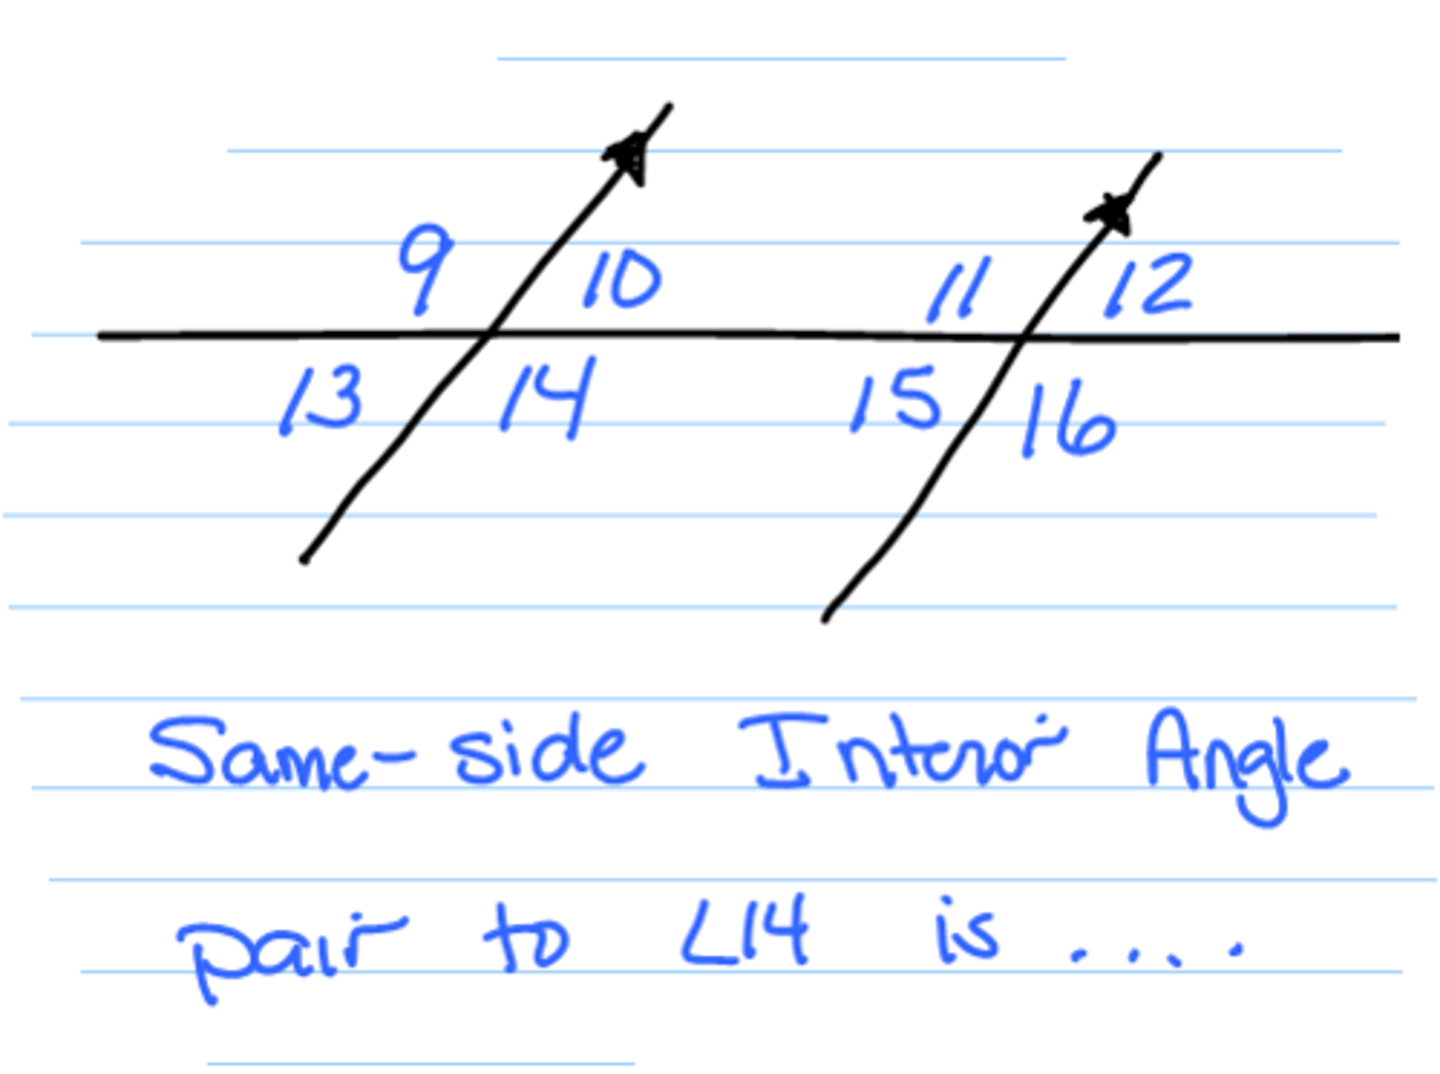 9 10 11 12
13 14 15 16
Same-side Interior Angle
pair to ∠14 is ....